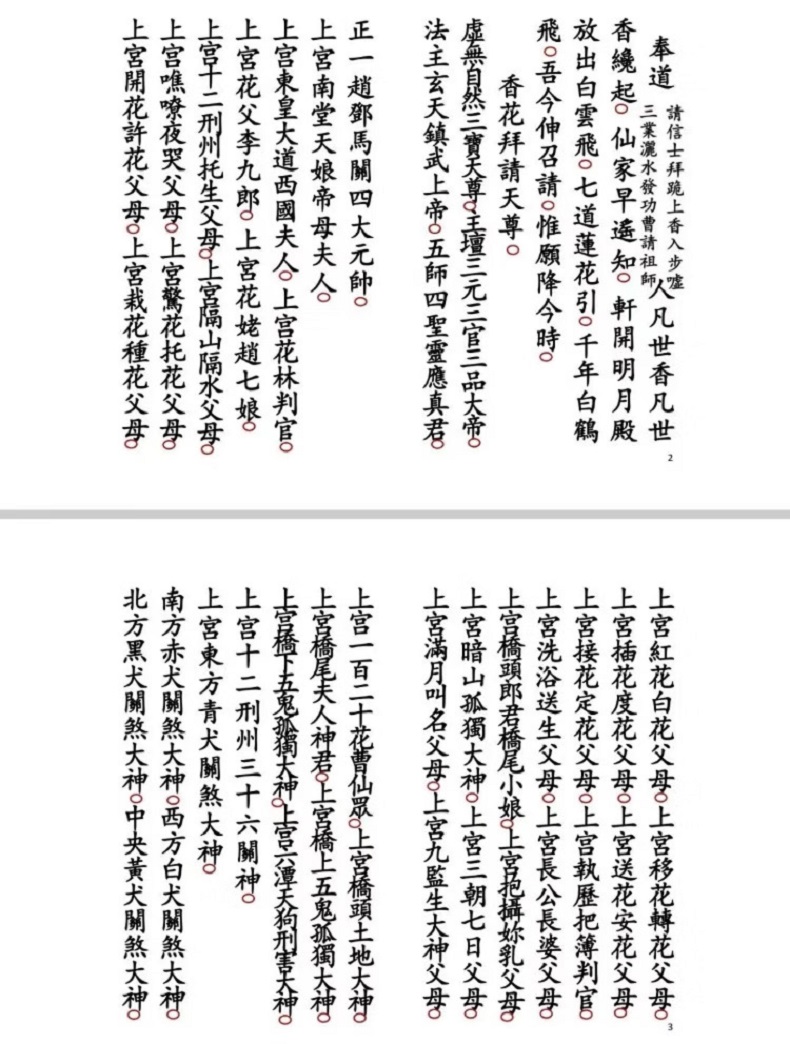 奉道
請信士拜跪上香入步噓
三業灑水發功曹請祖師
人凡世香凡世
香纔起○仙家早遙知○軒開明月殿
放出白雲飛○七道蓮花引○千年白鶴
飛○吾今伸召請○惟願降今時○
香花拜請天尊○
虛無自然三寶天尊○王壇三元三官三品大帝○
法主玄天鎮武上帝○五師四聖靈應真君○
正一趙鄧馬關四大元帥○
上宮南堂天娘帝母夫人○
上宮東皇大道西國夫人○上宮花林判官○
上宮花父李九郎○上宮花姥趙七娘○
上宮十二刑州托生父母○上宮隔山隔水父母○
上宮嘺嘹夜哭父母○上宮驚花托花父母○
上宮開花許花父母○上宮栽花種花父母○
2
上宮紅花白花父母○上宮移花轉花父母○
上宮插花度花父母○上宮送花安花父母○
上宮接花定花父母○上宮執歷把簿判官○
上宮洗浴送生父母○上宮長公長婆父母○
上宮橋頭郎君橋尾小娘○上宮抱攝妳乳父母○
上宮暗山孤獨大神○上宮三朝七日父母○
上宮滿月叫名父母○上宮九監生大神父母○
上宮一百二十花曹仙眾○上宮橋頭土地大神○
上宮橋尾夫人神君○上宮橋上五鬼孤獨大神○
上宮橋下五鬼孤獨大神○上宮六潭天狗刑害大神○
上宮十二刑州三十六關神○
上宮東方青犬關煞大神○
南方赤犬關煞大神○西方白犬關煞大神○
北方黑犬關煞大神○中央黃犬關煞大神○
3